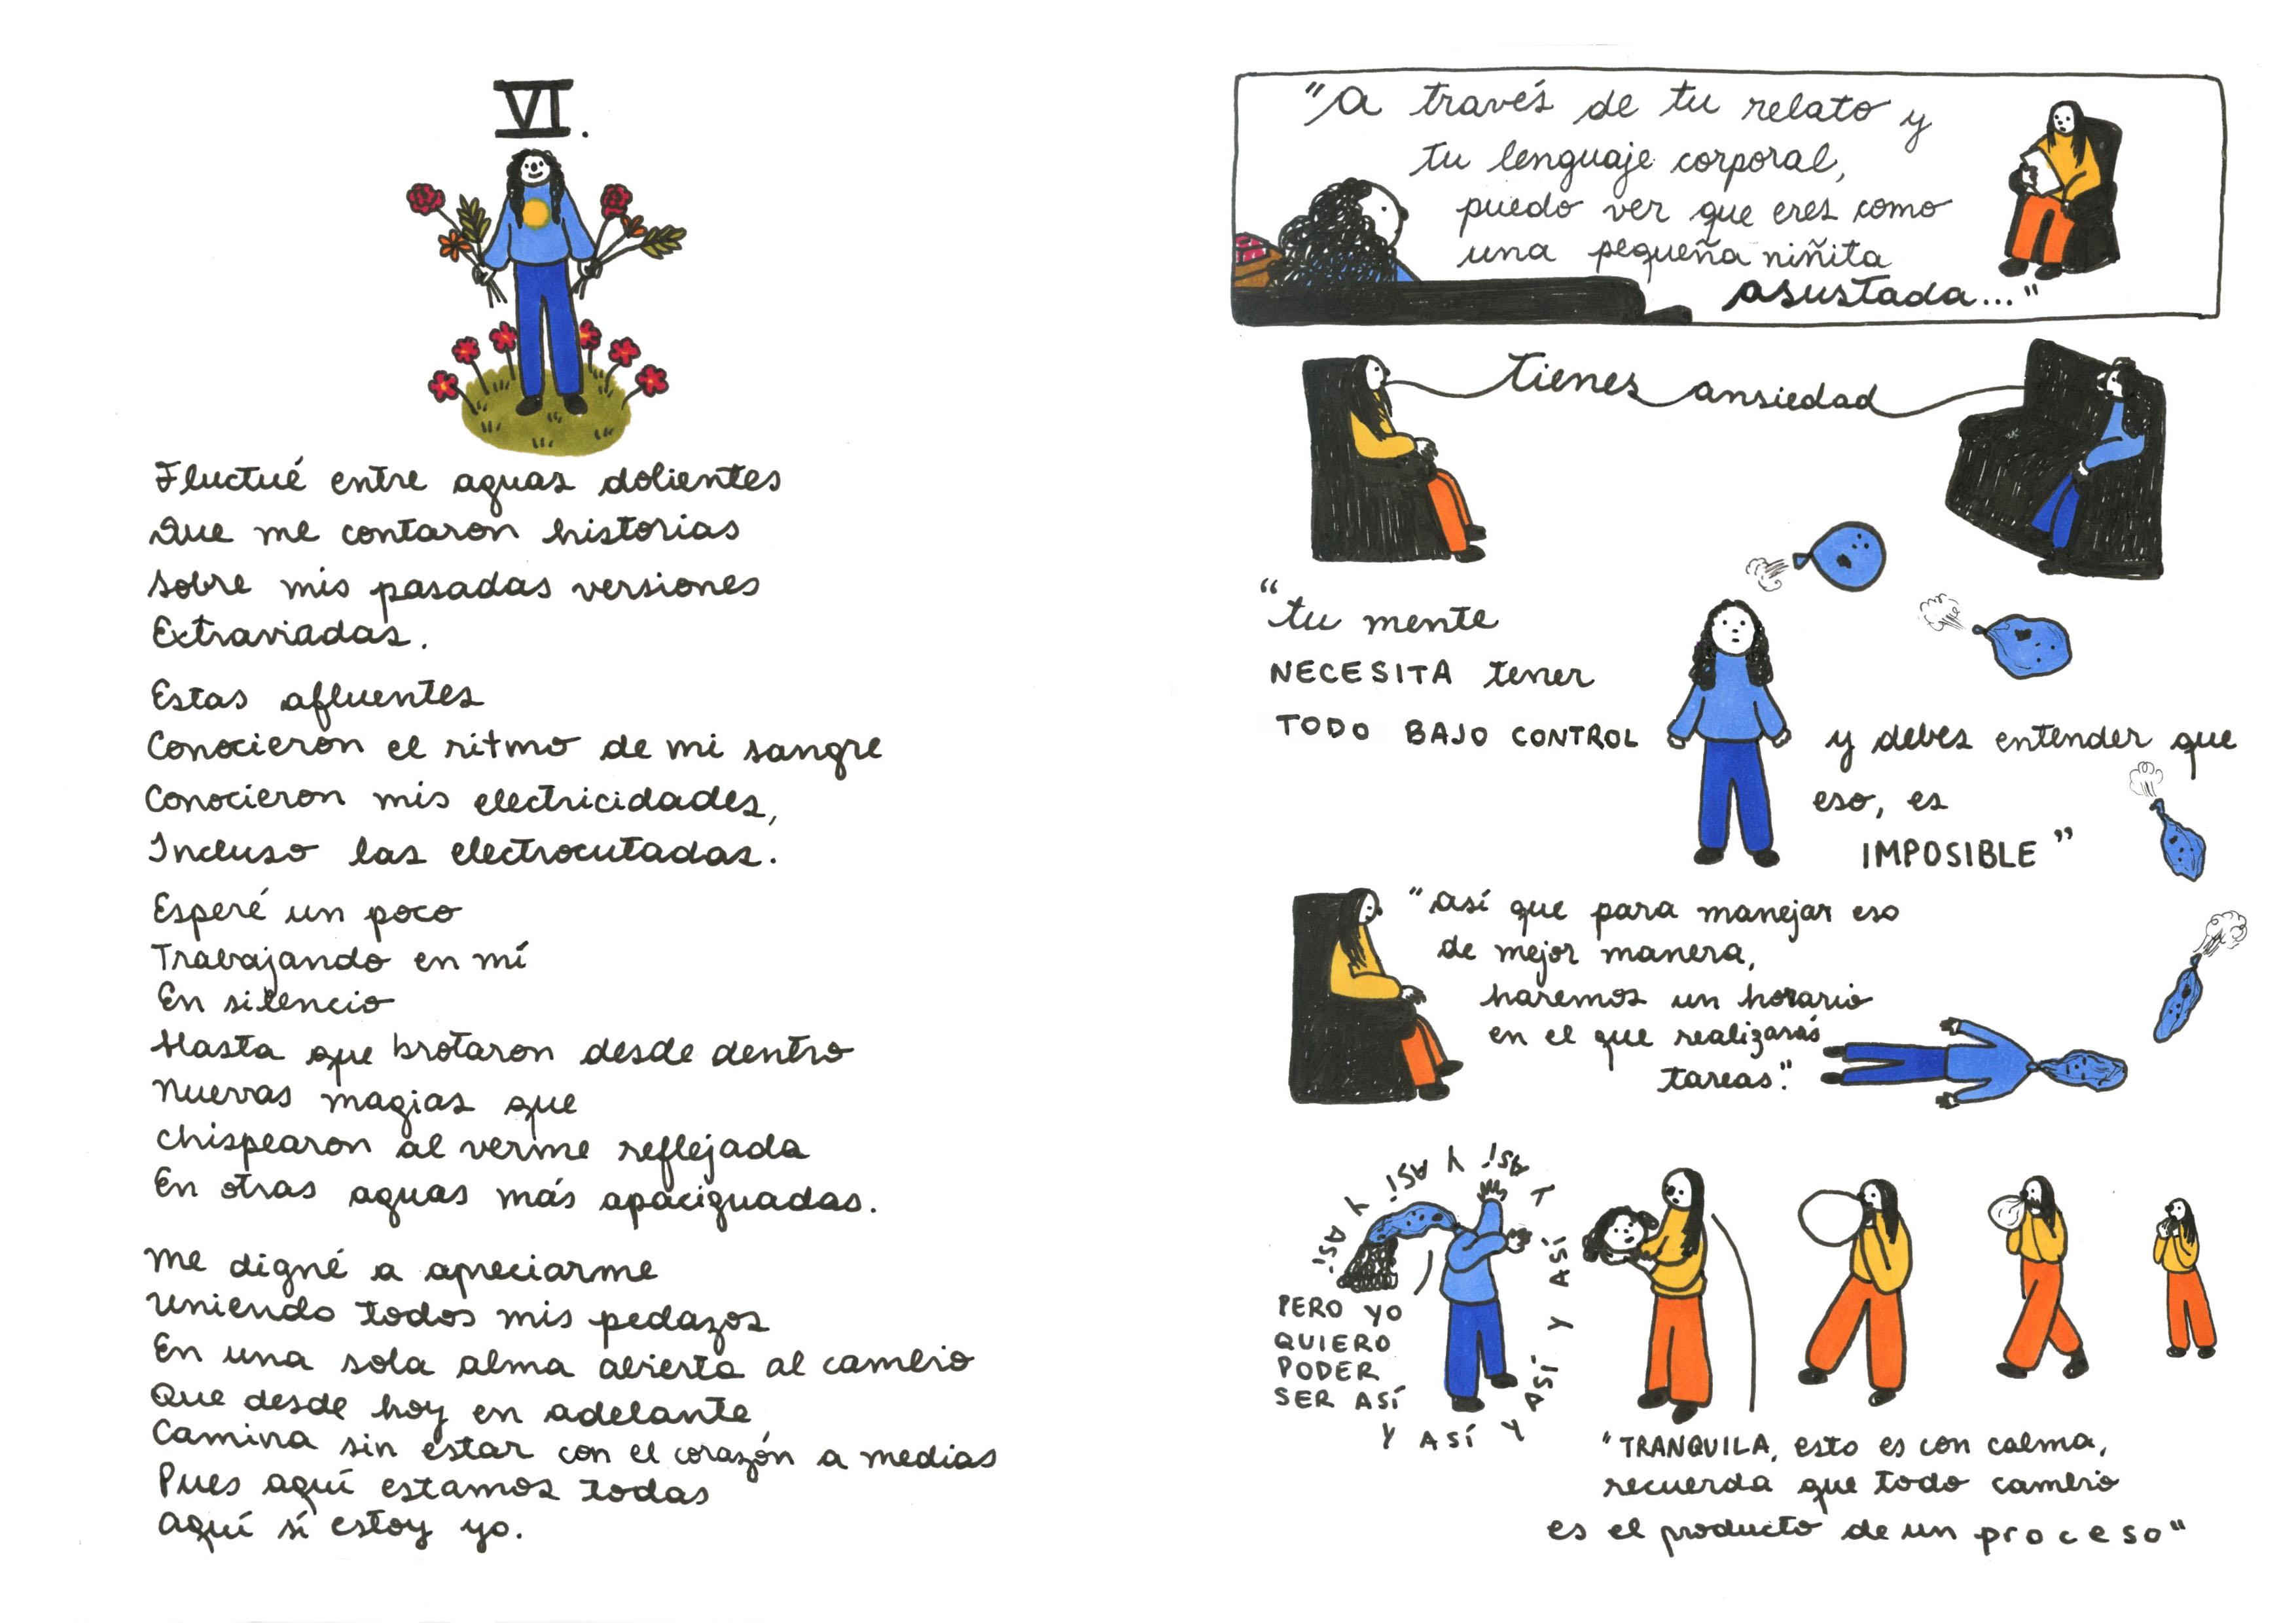 VI.
Fluctué entre aguas dolientes
Que me contaron historias
Sobre mis pasadas versiones
Extraviadas.
Estas afluentes
Conocieron el ritmo de mi sangre
Conocieron mis electricidades,
Incluso las electrocutadas.
Esperé un poco
Trabajando en mí
En silencio
Hasta que brotaron desde dentro
Nuevas magias que
chispearon al verme reflejada
En otras aguas más apaciguadas.
Me digné a apreciarme
Uniendo todos mis pedazos
En una sola alma abierta al cambio
Que desde hoy en adelante
Camina sin estar con el corazón a medias
Pues aquí estamos todas
Aquí sí estoy yo.
"A través de tu relato y
tu lenguaje corporal,
puedo ver que eres como
una pequeña niñita
asustada..."
tienes ansiedad
"tu mente
NECESITA tener
TODO BAJO CONTROL
y debes entender que
eso, es
IMPOSIBLE"
"Así que para manejar eso
de mejor manera,
haremos un horario
en el que realizarás
tareas."
PERO YO
QUIERO
PODER
SER ASÍ
Y ASÍ Y ASÍ Y ASÍ Y ASÍ Y ASÍ Y ASÍ Y ASÍ
"TRANQUILA, esto es con calma,
recuerda que todo cambio
es el producto de un proceso"